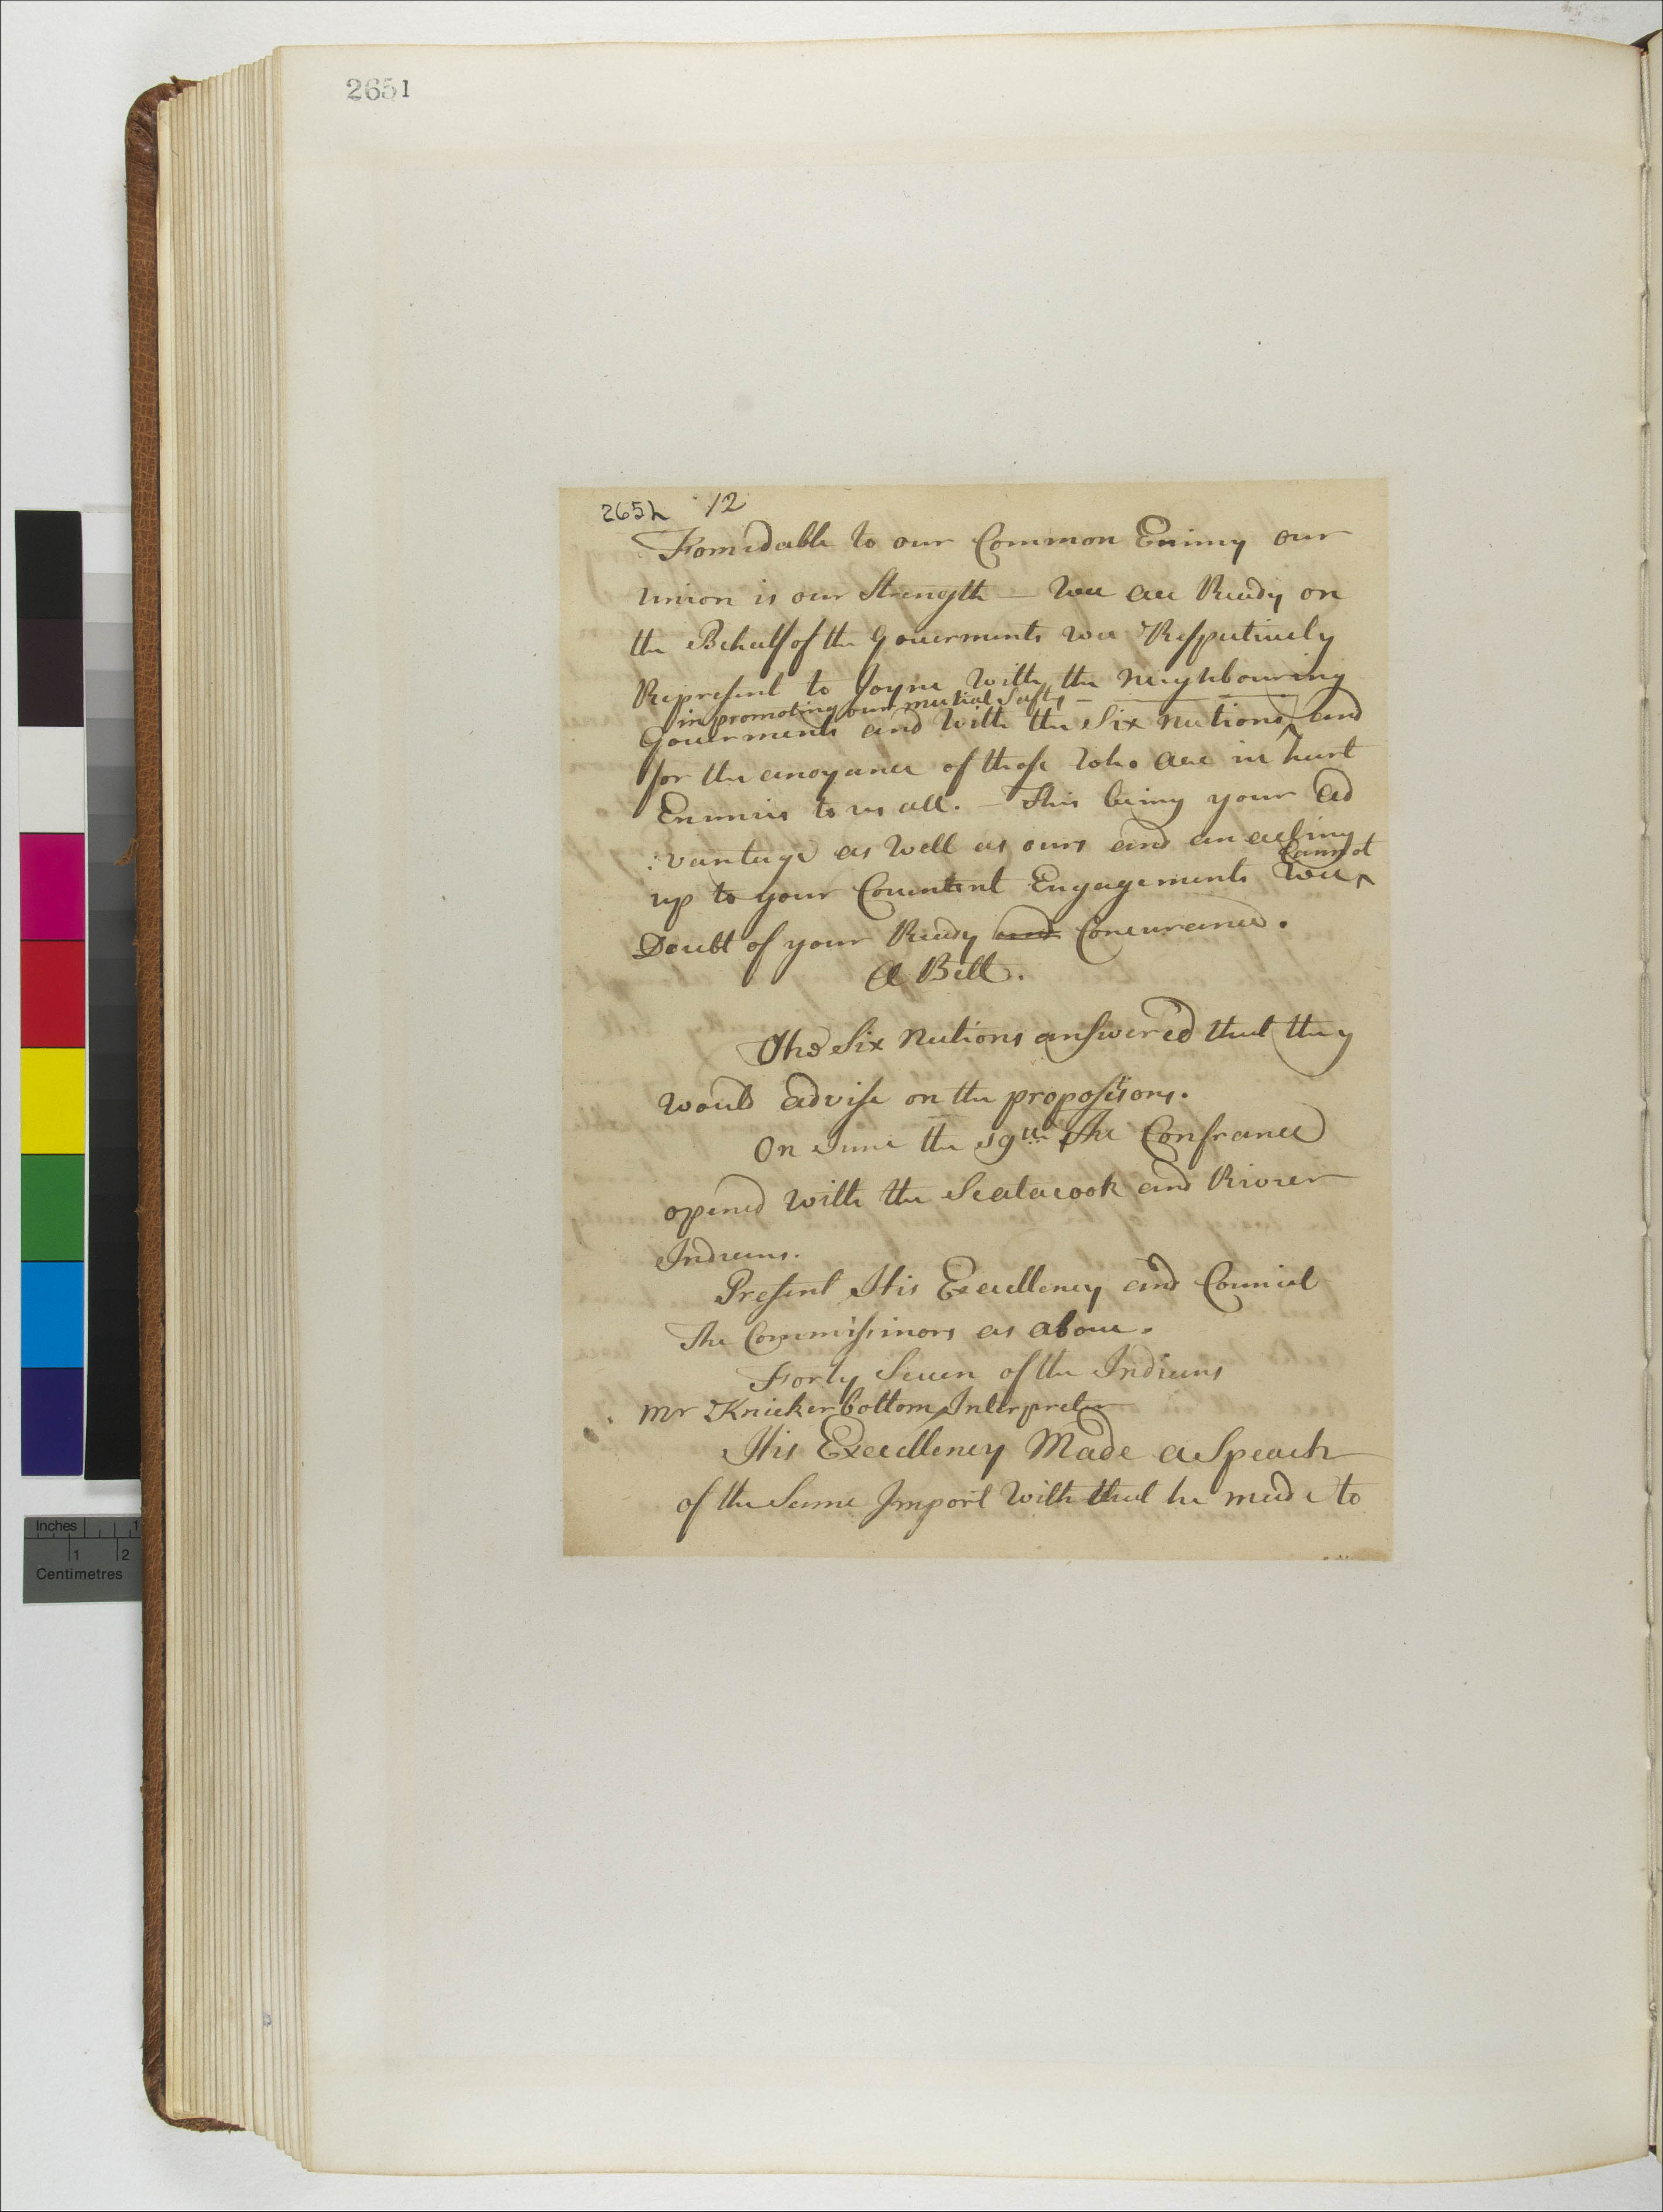 2651
265h 12
Fomidable to our Common Enimy our
union is our Strength — Wee are Ready on
the Behalf of the Gouerments wee Respectiuely
Represent to Joyne With the Neighbouring
in promoting our mutial Safty —
Gouerments and With the Six Nations ^ and
for the anoyance of those Who are in hart
Enimies to us all. — This being your Ad
:vantage as Well as ours and an acting
cannot
up to your Couentent Engagements Wee ^
Doubt of your Ready and Concurance.
A Belt.
The Six Nations answered that they
would advise on the propositions.
On June the 19th The Confrance
opened With the Scatacook and Rivier
Indians.
Present His Excellency and Councal
The Commissinors as aboue.
Forty Seuen of the Indians
Mr Knickerbottom Interpreter
His Excellency Made a Speach
of the Same Import With that he made to
Inches 1
1 2
Centimetres